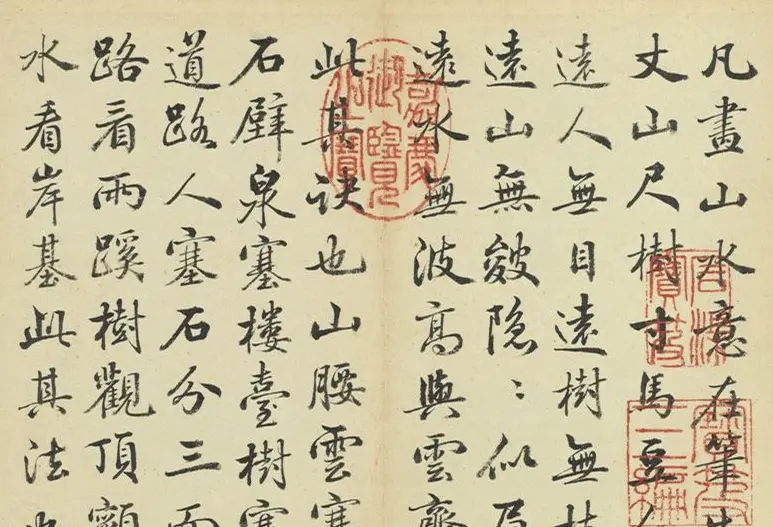 凡畫山水意在筆
丈山尺樹寸馬豆人
遠人無目遠樹無枝
遠山無皴隱〻似眉
遠水無波高與雲齊
此其訣也山腰雲塞
石壁泉塞樓臺樹塞
道路人塞石分三面
路看兩蹊樹觀頂
水看岸基此其法也
嘉慶御覽之寶
石渠寶笈